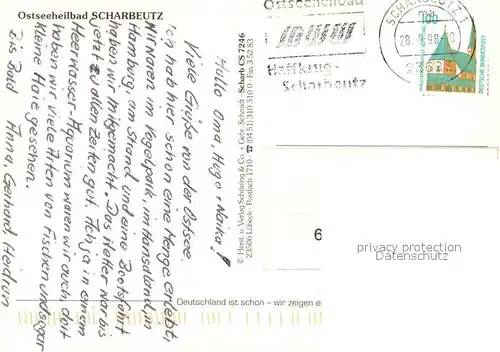 Ostseeheilbad SCHARBEUTZ
Hallo Oma, Hugo + Naika!
Viele Grüße von der Ostsee.
Ich hab hier schon eine Menge erlebt,
Wir waren im Vogelpark, im Hansaland, in
Hamburg, am Strand und eine Bootsfahrt
haben wir mitgemacht. Das Wetter war bis
jetzt zu allen Zeiten gut. Ach ja in einem
Meerwasser-Aquarium waren wir auch, dort
haben wir viele Arten von Fischen und sogar
kleine Haie gesehen.
Bis Bald Anna, Gerhard, Heidrun
© Horst. u. Verlag Schöning & Co. + Gebr. Schmidt · Scharb CS 7246
23506 Lübeck · Postfach 1710 · ☎ (0451) 310 310 0 · Fax 3 52 83
Ostseeheilbad
Haffkrug-
Scharbeutz
SCHARBEUTZ 1
28
98-18
100
DEUTSCHE BUNDESPOST
6
privacy protection
watermark
Deutschland ist schön – wir zeigen es